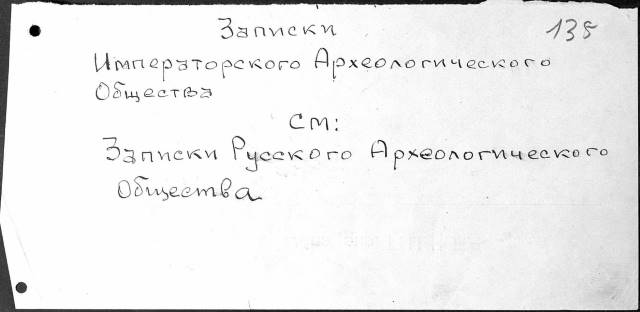 Записки 135
Императорского Археологического
Общества
См:
Записки Русского Археологического
Общества